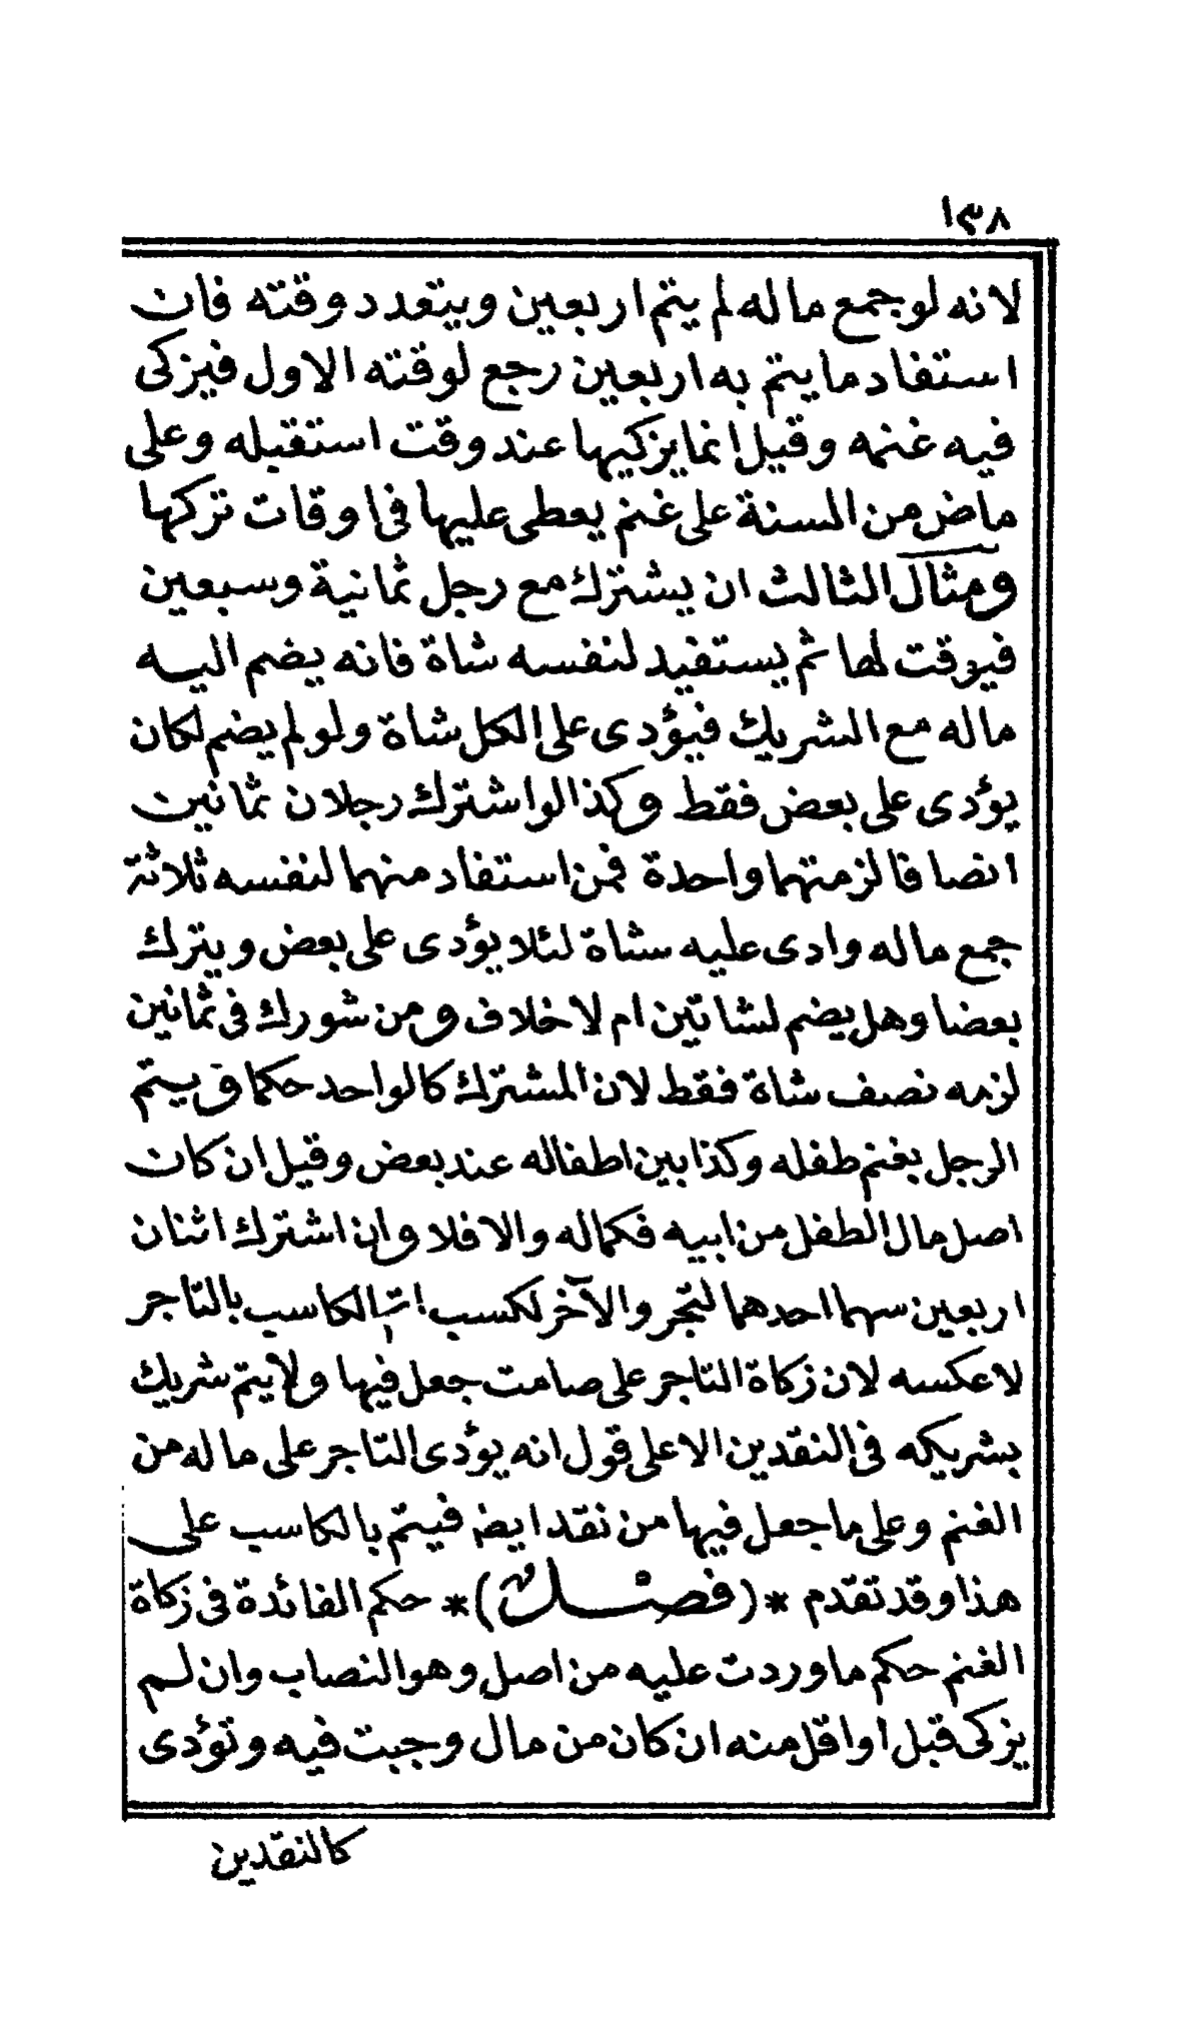 ١٣٨
لانه لو جمع ماله لم يتم اربعين ويتعدد وقته فان
استفاد ما يتم به اربعين رجع لوقته الاول فيزكى
فيه غنمه وقيل انما يزكيها عند وقت استقبله وعلى
ماض من السنة على غنم يعطى عليها فى اوقات تزكها
ومثال الثالث ان يشترك مع رجل ثمانية وسبعين
فيوقت لها ثم يستفيد لنفسه شاة فانه يضم اليه
ماله مع الشريك فيؤدى على الكل شاة ولو لم يضم لكان
يؤدى على بعض فقط وكذا لو اشترك رجلان ثمانين
انصافا لزمتهما واحدة فمن استفاد منهما لنفسه ثلاثة
جمع ماله وادى عليه شاة لئلا يؤدى على بعض ويترك
بعضا وهل يضم لشاتين ام لا خلاف ومن شورك فى ثمانين
لزمه نصف شاة فقط لان المشترك كالواحد حكما و يتم
الرجل بغنم طفله وكذا بين اطفاله عند بعض وقيل ان كان
اصل مال الطفل من ابيه فكماله والا فلا وان اشترك اثنان
اربعين سهما احدهما لتجر والآخر لكسب اتم الكاسب بالتاجر
لا عكسه لان زكاة التاجر على صامت جعل فيها ولا يتم شريك
بشريكه فى النقدين الا على قول انه يؤدى التاجر على ماله من
الغنم وعلى ما جعل فيها من نقد ايضا فيتم بالكاسب على
هذا وقد تقدم *(فصل)* حكم الفائدة فى زكاة
الغنم حكم ما وردت عليه من اصل وهو النصاب وان لم
يزكى قبل او اقل منه ان كان من مال وجبت فيه وتؤدى
كالنقدين